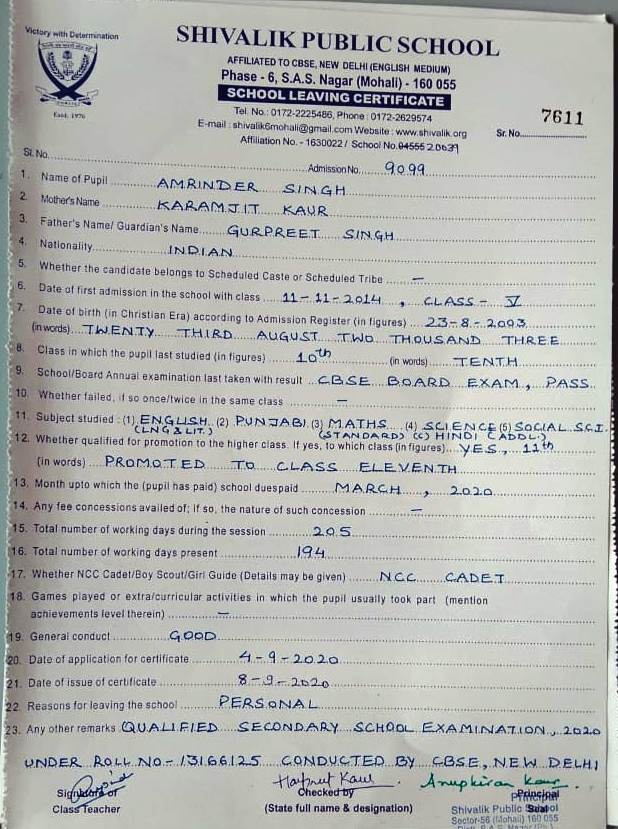 Victory with Determination
SHIVALIK PUBLIC SCHOOL
AFFILIATED TO CBSE, NEW DELHI (ENGLISH MEDIUM)
Phase - 6, S.A.S. Nagar (Mohali) - 160 055
SCHOOL LEAVING CERTIFICATE
Estd. 1976
Tel. No.: 0172-2225486, Phone : 0172-2629574
E-mail : shivalik6mohali@gmail.com Website : www.shivalik.org
Affiliation No. - 1630022 / School No. 04555 20639
Sr. No. 7611
Sl. No. Admission No. 9099
1. Name of Pupil AMRINDER SINGH
2. Mother's Name KARAMJIT KAUR
3. Father's Name/ Guardian's Name GURPREET SINGH
4. Nationality INDIAN
5. Whether the candidate belongs to Scheduled Caste or Scheduled Tribe —
6. Date of first admission in the school with class 11-11-2014, CLASS - V
7. Date of birth (in Christian Era) according to Admission Register (in figures) 23-8-2003
(in words) TWENTY THIRD AUGUST TWO THOUSAND THREE
8. Class in which the pupil last studied (in figures) 10th (in words) TENTH
9. School/Board Annual examination last taken with result CBSE BOARD EXAM, PASS
10. Whether failed, if so once/twice in the same class —
11. Subject studied : (1) ENGLISH (2) PUNJABI (3) MATHS (4) SCIENCE (5) SOCIAL SCI.
(LNG & LIT.) (STANDARD) (6) HINDI (ADDL.)
12. Whether qualified for promotion to the higher class. If yes, to which class (in figures) YES, 11th
(in words) PROMOTED TO CLASS ELEVENTH
13. Month upto which the (pupil has paid) school dues paid MARCH, 2020
14. Any fee concessions availed of; if so, the nature of such concession —
15. Total number of working days during the session 205
16. Total number of working days present 194
17. Whether NCC Cadet/Boy Scout/Girl Guide (Details may be given) NCC CADET
18. Games played or extra/curricular activities in which the pupil usually took part (mention
achievements level therein) —
19. General conduct GOOD
20. Date of application for certificate 4-9-2020
21. Date of issue of certificate 8-9-2020
22. Reasons for leaving the school PERSONAL
23. Any other remarks QUALIFIED SECONDARY SCHOOL EXAMINATION, 2020
UNDER ROLL NO-13166125 CONDUCTED BY CBSE, NEW DELHI
Harpreet Kaur Anupkiran Kaur
Signature of Checked by Principal
Class Teacher (State full name & designation) Seal
Principal
Shivalik Public School
Sector-56 (Mohali) 160 055